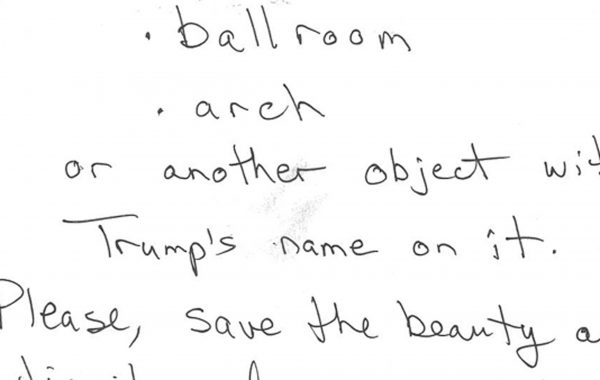 · ballroom
· arch
or another object wit
Trump's name on it.
Please, save the beauty a